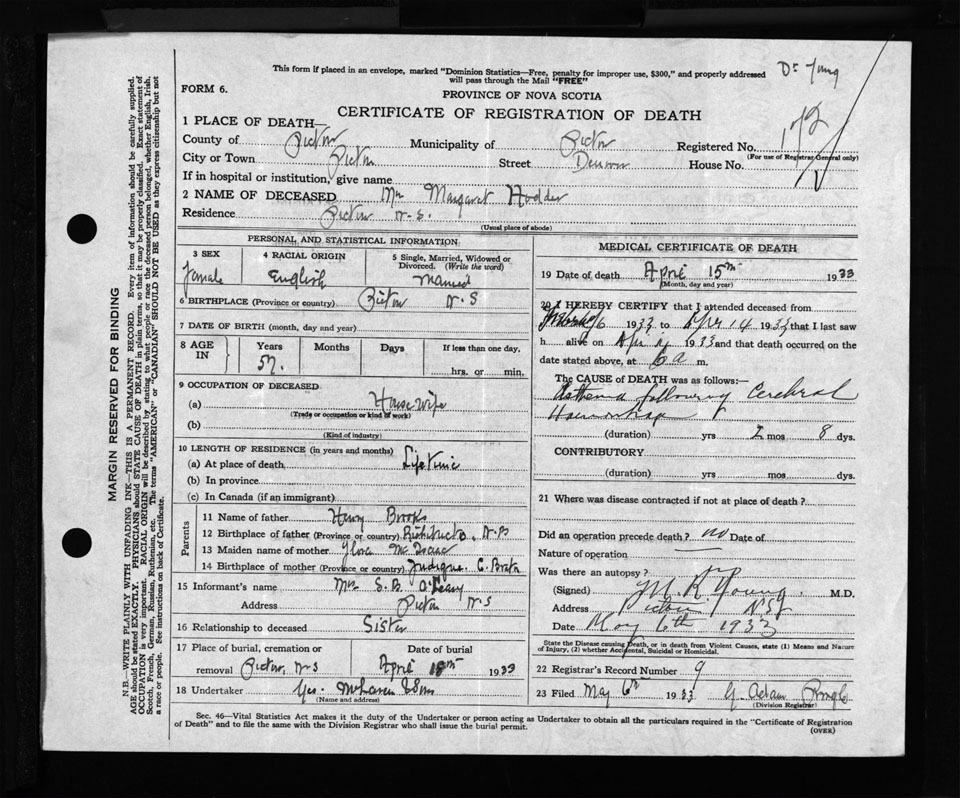 This form if placed in an envelope, marked "Dominion Statistics—Free, penalty for improper use, $300," and properly addressed
will pass through the Mail "FREE"
Dr Young
FORM 6.
PROVINCE OF NOVA SCOTIA
CERTIFICATE OF REGISTRATION OF DEATH
1 PLACE OF DEATH—
County of Pictou Municipality of Pictou Registered No.
(For use of Registrar General only)
City or Town Pictou Street Denoon House No.
If in hospital or institution, give name
2 NAME OF DECEASED Mrs Margaret Hodder
Residence Pictou N.S.
(Usual place of abode)
PERSONAL AND STATISTICAL INFORMATION
3 SEX 4 RACIAL ORIGIN 5 Single, Married, Widowed or
Divorced. (Write the word)
Female English Married
6 BIRTHPLACE (Province or country) Pictou N.S
7 DATE OF BIRTH (month, day and year)
8 AGE IN Years Months Days If less than one day,
57. hrs. or min.
9 OCCUPATION OF DECEASED
(a) House-wife
(Trade or occupation or kind of work)
(b)
(Kind of industry)
10 LENGTH OF RESIDENCE (in years and months)
(a) At place of death Lifetime
(b) In province
(c) In Canada (if an immigrant)
Parents
11 Name of father Henry Brooks
12 Birthplace of father (Province or country) Richibucto, N.B
13 Maiden name of mother Flora McIsaac
14 Birthplace of mother (Province or country) Judique C. Breton
15 Informant's name Mrs S.B. O'Leary
Address Pictou N.S
16 Relationship to deceased Sister
17 Place of burial, cremation or Date of burial
removal Pictou, N.S April 18th 1933
18 Undertaker Geo. McLaren & Sons
(Name and address)
MEDICAL CERTIFICATE OF DEATH
19 Date of death April 15th 1933
(Month, day and year)
20 I HEREBY CERTIFY that I attended deceased from
6 1933 to Apr 14 1933 that I last saw
h alive on Apr 14 1933 and that death occurred on the
date stated above, at 6 a m.
The CAUSE OF DEATH was as follows:—
Asthenia following Cerebral
Haemorrhage
(duration) yrs 2 mos 8 dys.
CONTRIBUTORY
(duration) yrs. mos. dys.
21 Where was disease contracted if not at place of death?
Did an operation precede death? no Date of
Nature of operation
Was there an autopsy? no
(Signed) M R Young M.D.
Address Pictou NS
Date May 6th 1933
State the Disease causing Death, or in death from Violent Causes, state (1) Means and Nature
of Injury, (2) whether Accidental, Suicidal or Homicidal.
22 Registrar's Record Number 9
23 Filed May 6th 1933 G. Adam Pringle
(Division Registrar)
Sec. 46—Vital Statistics Act makes it the duty of the Undertaker or person acting as Undertaker to obtain all the particulars required in the "Certificate of Registration
of Death" and to file the same with the Division Registrar who shall issue the burial permit.
(OVER)
MARGIN RESERVED FOR BINDING
N.B.—WRITE PLAINLY WITH UNFADING INK—THIS IS A PERMANENT RECORD. Every item of information should be carefully supplied.
AGE should be stated EXACTLY. PHYSICIANS should STATE CAUSE OF DEATH in plain terms, so that it may be properly classified. Exact statement of
OCCUPATION is very important. RACIAL ORIGIN will be described by stating to what people or race the deceased person belonged, whether English, Irish,
Scotch, French, German, Russian, Ruthenian, etc. The terms "AMERICAN" or "CANADIAN" SHOULD NOT BE USED as they express citizenship but not
a race or people. See instructions on back of Certificate.